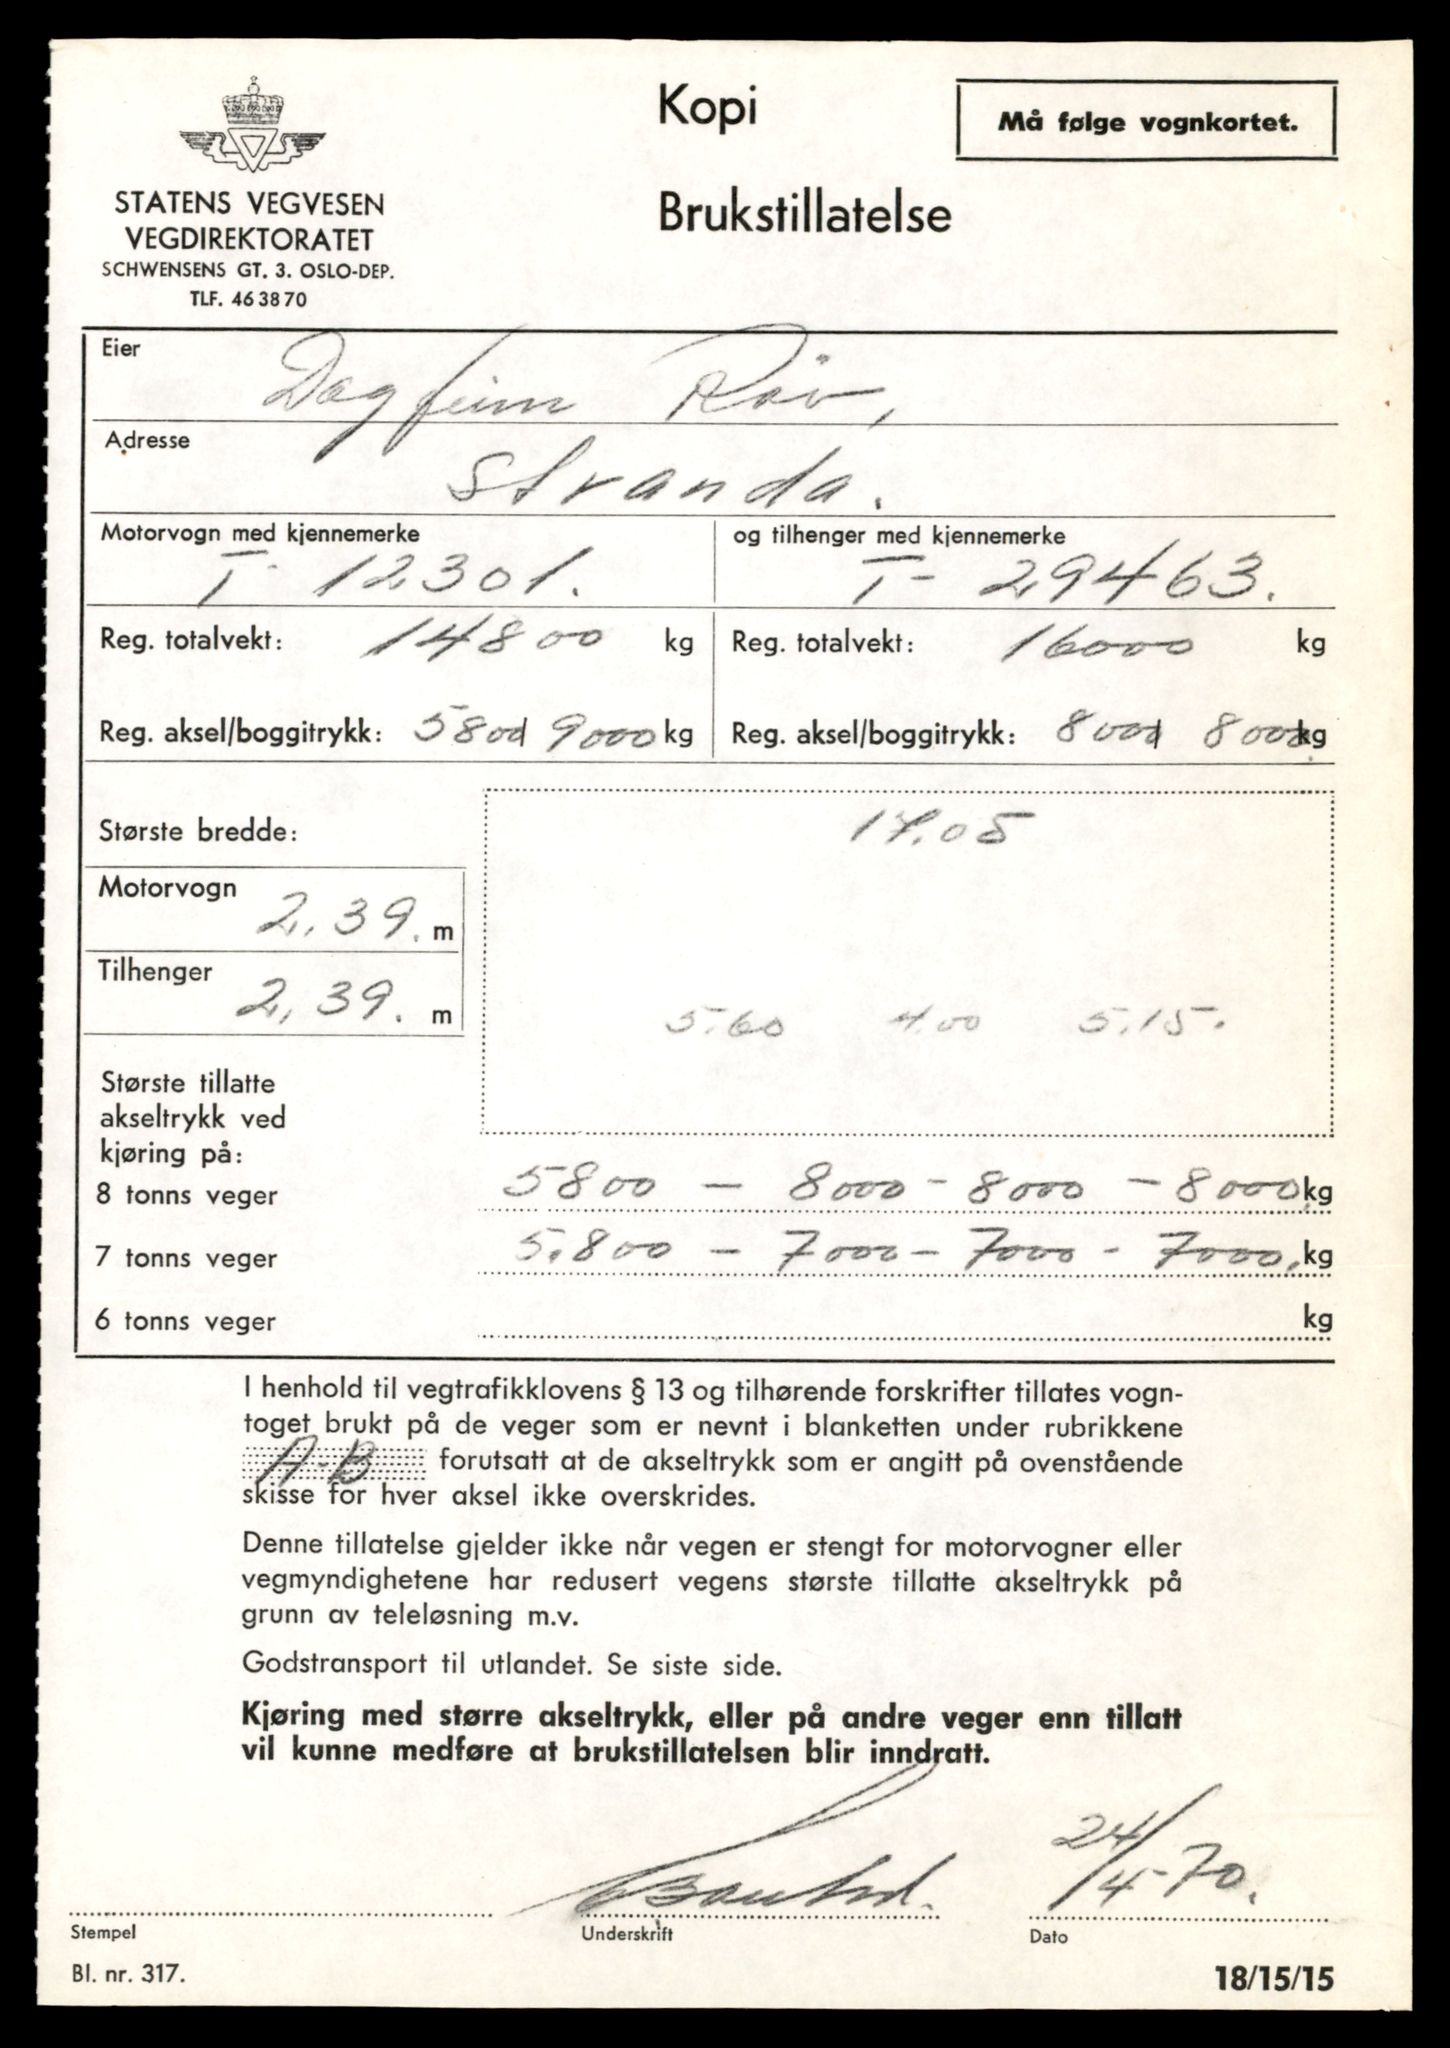 Kopi
Må følge vognkortet.
STATENS VEGVESEN
VEGDIREKTORATET
SCHWENSENS GT. 3. OSLO-DEP.
TLF. 46 38 70
Brukstillatelse
Eier
Dagfinn Röv,
Adresse
Stranda.
Motorvogn med kjennemerke
T- 12301.
og tilhenger med kjennemerke
T- 29463.
Reg. totalvekt: 14800 kg
Reg. totalvekt: 16000 kg
Reg. aksel/boggitrykk: 5800/ 9000 kg
Reg. aksel/boggitrykk: 8000/ 8000 kg
Største bredde:
17.05
Motorvogn
2,39. m
Tilhenger
2,39. m
5.60 4.00 5.15.
Største tillatte
akseltrykk ved
kjøring på:
8 tonns veger 5800 — 8000 - 8000 — 8000 kg
7 tonns veger 5.800 — 7000 — 7000 - 7000. kg
6 tonns veger kg
I henhold til vegtrafikklovens § 13 og tilhørende forskrifter tillates vogn-
toget brukt på de veger som er nevnt i blanketten under rubrikkene
A-B forutsatt at de akseltrykk som er angitt på ovenstående
skisse for hver aksel ikke overskrides.
Denne tillatelse gjelder ikke når vegen er stengt for motorvogner eller
vegmyndighetene har redusert vegens største tillatte akseltrykk på
grunn av teleløsning m.v.
Godstransport til utlandet. Se siste side.
Kjøring med større akseltrykk, eller på andre veger enn tillatt
vil kunne medføre at brukstillatelsen blir inndratt.
24/4-70.
Stempel
Underskrift
Dato
Bl. nr. 317.
18/15/15